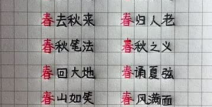 春去秋来 春归人老
春秋笔法 春秋之义
春回大地 春诵夏弦
春山如笑 春风满面